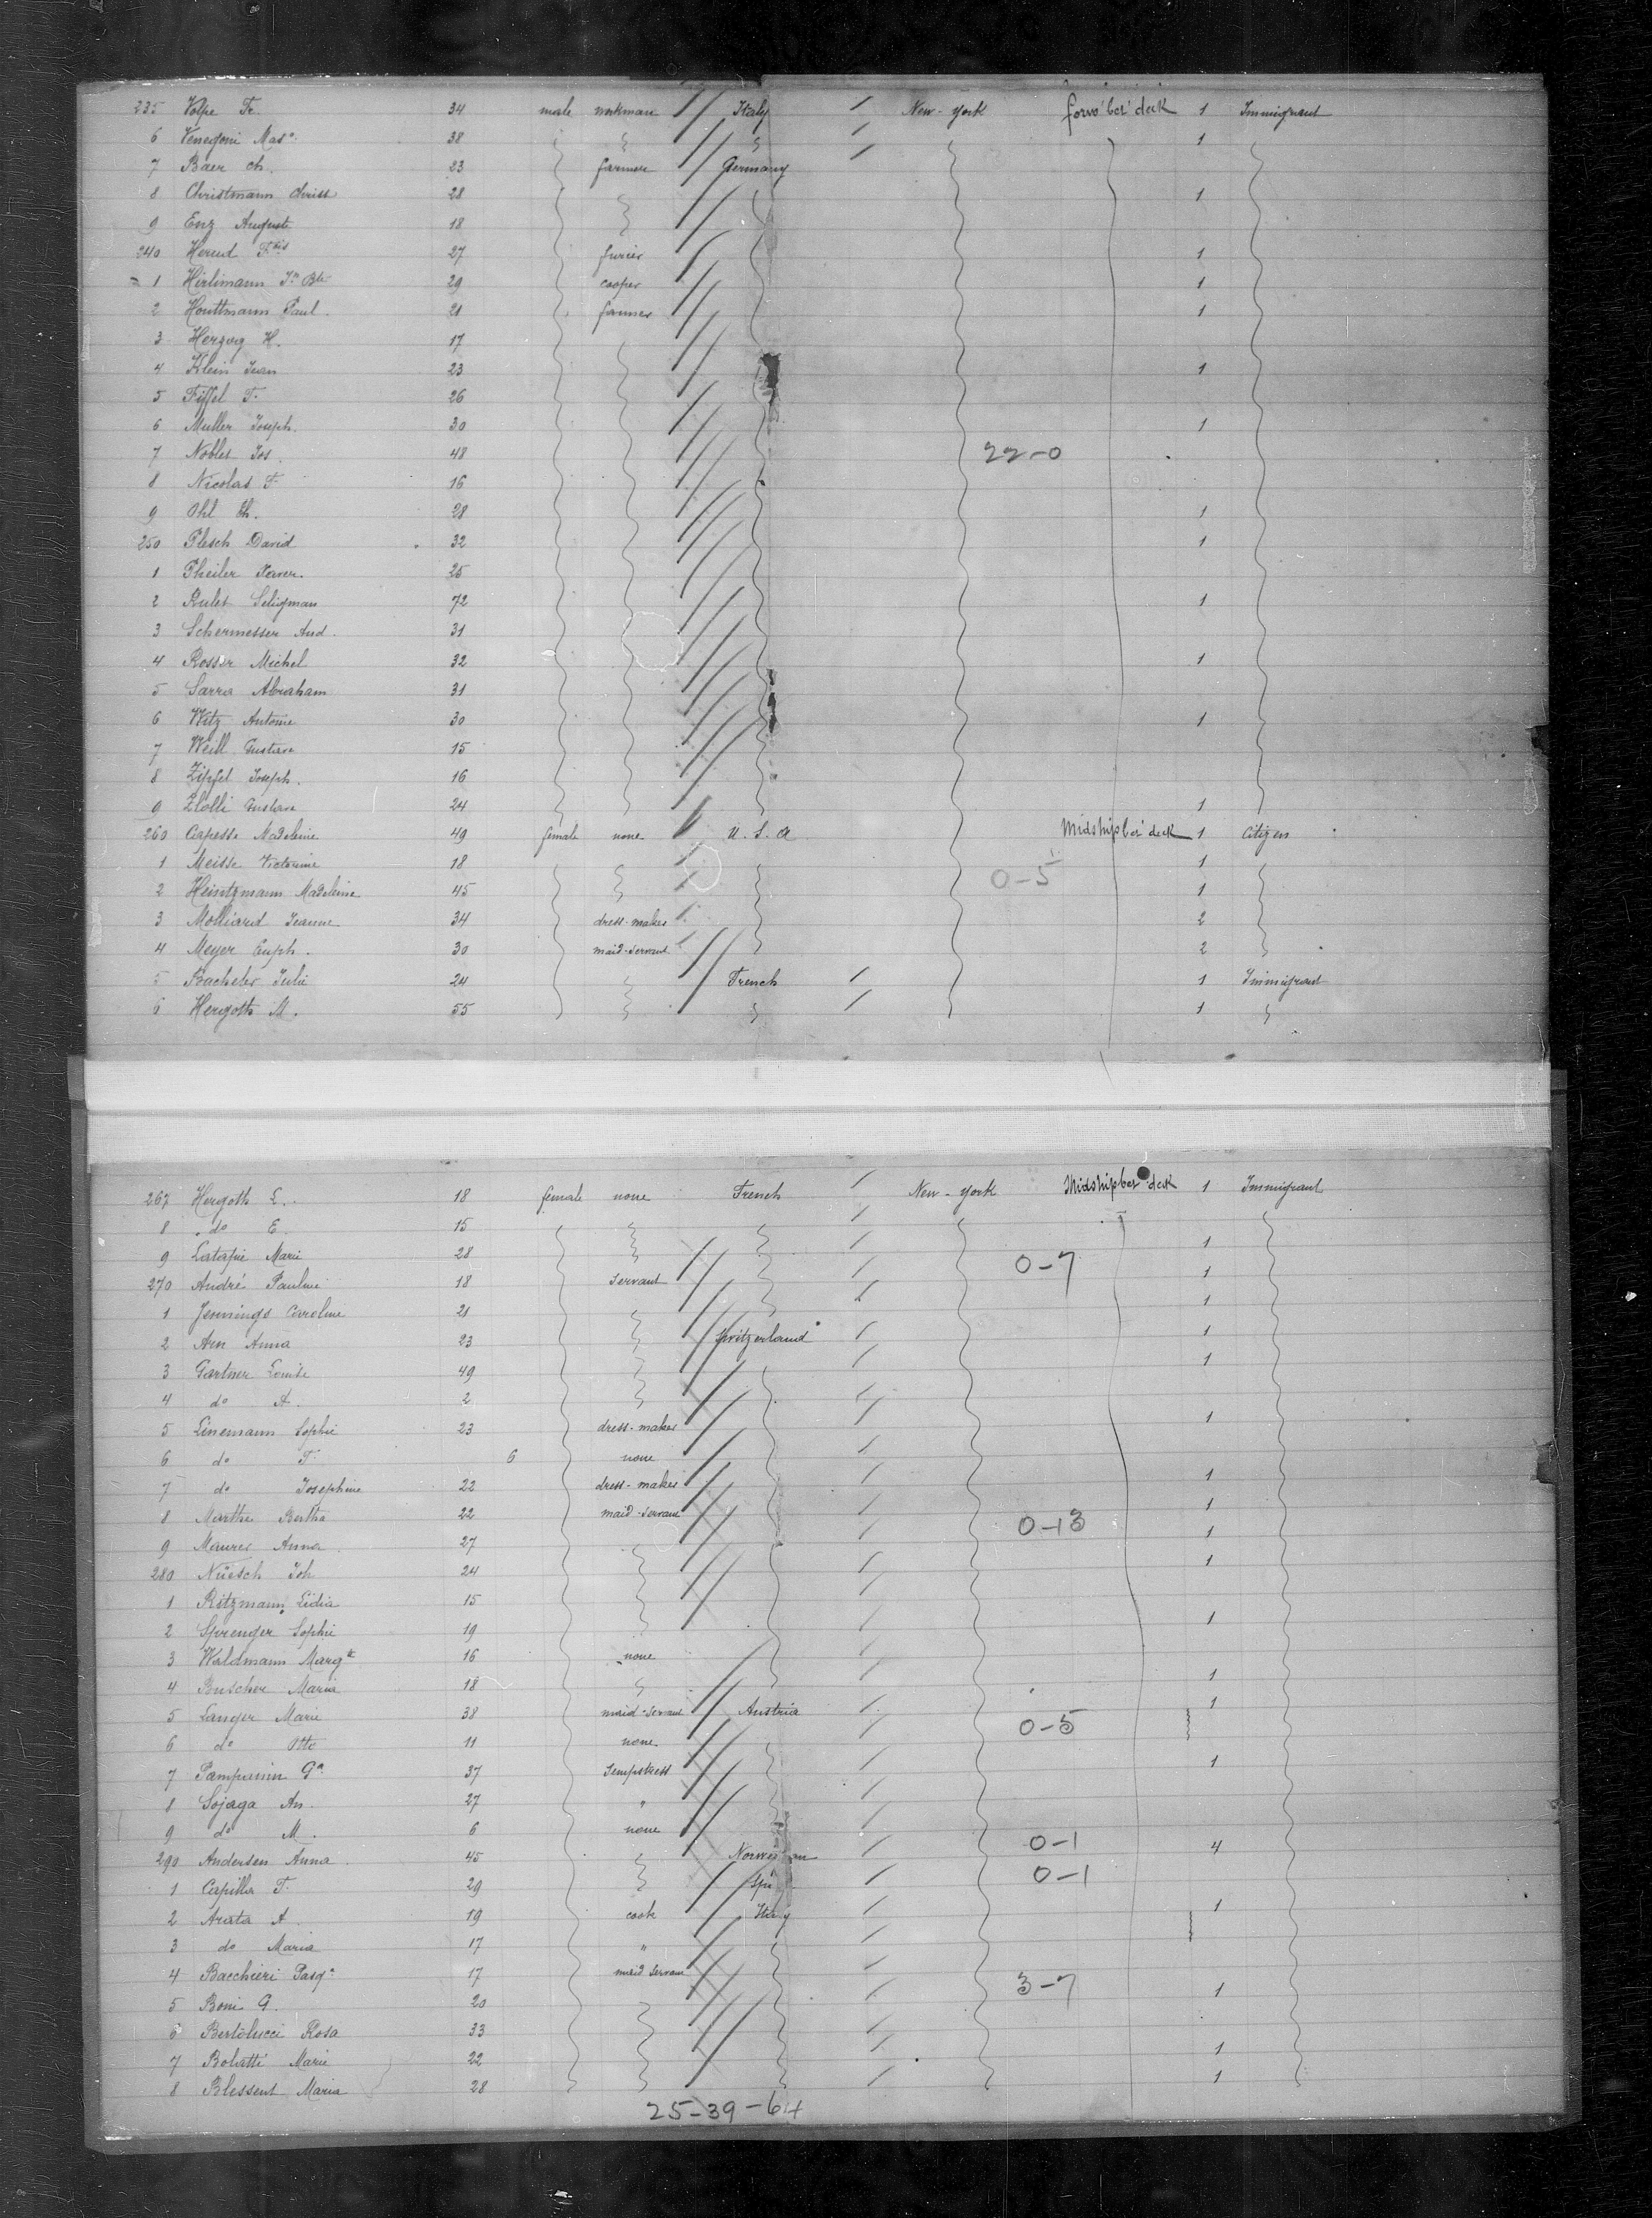 235 Volpe Fr. 34 male workman Italy New-York forw bet deck 1 Immigrant
6 Venegoni Mas° 38 1
7 Baer Ch. 23 farmer Germany
8 Christmann Christ 28 1
9 Enz Auguste 18
240 Herent 27 furier 1
1 Hirlimann Jn Bte 29 cooper 1
2 Houttmann Paul 21 farmer 1
3 Herzog H. 17
4 Klein Jean 23 1
5 Fiffel F. 26
6 Muller Joseph 30 1
7 Nobles Jos 48 22-0
8 Nicolas F. 16
9 Ohl Ch. 28 1
250 Plesch David 32 1
1 Theiler Xaver. 25
2 Rulet Seligman 72 1
3 Schermesser And. 31
4 Rosser Michel 32 1
5 Sarra Abraham 31
6 Witz Antoine 30 1
7 Weill Gustave 15
8 Zipfel Joseph. 16
9 Zlolli Gustave 24 1
260 Capesse Madeleine 49 female none U.S.A Midship bet deck 1 Citizen
1 Meisse Victorine 18 0-5 1
2 Heintzmann Madeleine 45 1
3 Molliard Jeanne 34 dress-maker 2
4 Meyer Euph. 30 maid-servant 2
5 Bacheler Julie 24 French 1 Immigrant
6 Hergoth M. 55 1
267 Hergoth L. 18 female none French New-York Midship bet deck 1 Immigrant
8 do E 15
9 Latapie Marie 28 0-7 1
270 André Pauline 18 servant 1
1 Jennings Caroline 21 1
2 Arn Anna 23 Switzerland 1
3 Gartner Louise 49 1
4 do A. 2
5 Linemann Sophie 23 dress-maker 1
6 do F. 6 none
7 do Josephine 22 dress-maker 1
8 Marthe Bertha 22 maid-servant 0-13 1
9 Maurer Anna 27 1
280 Nüesch Joh 24 1
1 Ritzmann Lidia 15
2 Sprenger Sophie 19 1
3 Waldmann Margte 16 none
4 Buscher Maria 18 1
5 Langer Marie 38 maid-servant Austria 0-5 1
6 do Otto 11 none
7 Pampurini Ga 37 Sempstress 1
8 Sojaga An. 27 "
9 do M. 6 none
290 Andersen Anna 45 Norwegian 0-1 4
1 Capilla F. 29 0-1
2 Arata A. 19 cook Italy 1
3 do Maria 17 "
4 Bacchieri Pasqa 17 maid Servant
5 Boni G. 20 3-7 1
6 Bertolucci Rosa 33
7 Bolatti Marie 22 1
8 Blessent Maria 28 1
25-39-64